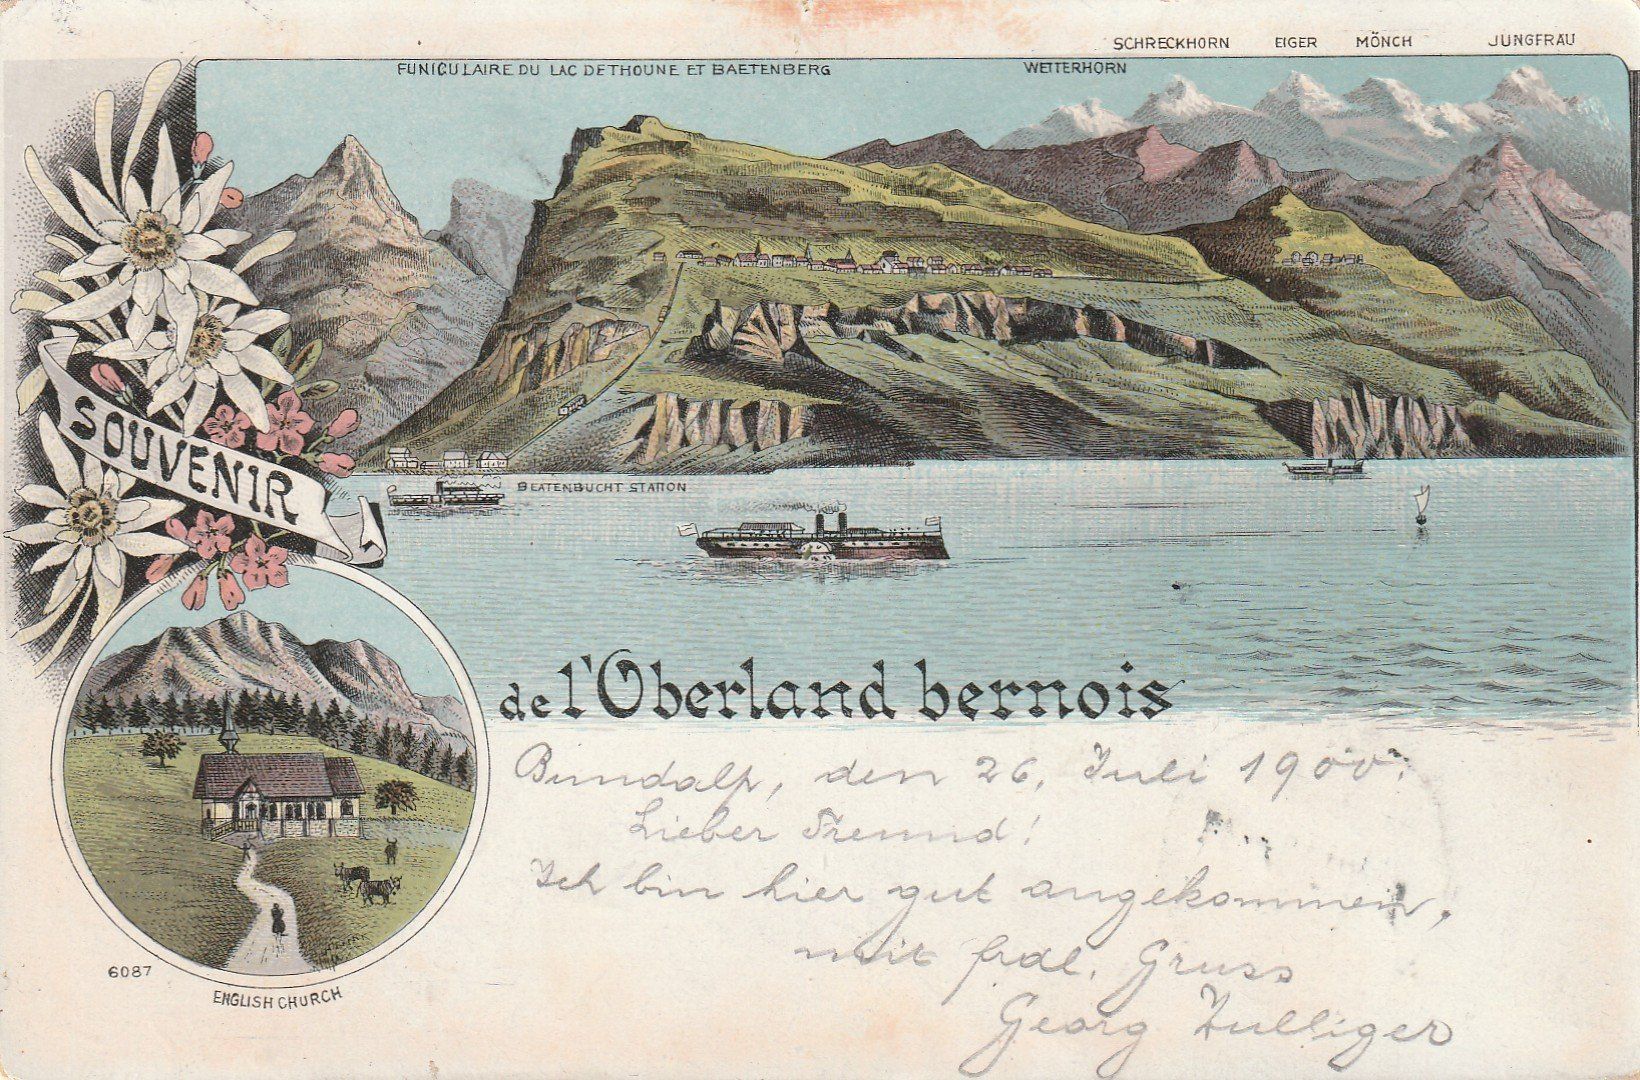 SCHRECKHORN EIGER MÖNCH JUNGFRAU
FUNICULAIRE DU LAC DE THOUNE ET BAETENBERG WETTERHORN
SOUVENIR
BEATENBUCHT STATION
de l'Oberland bernois
Bundalp, den 26. Juli 1900.
Lieber Freund!
Ich bin hier gut angekommen,
mit frdl. Gruss
Georg Zulliger
6087
ENGLISH CHURCH